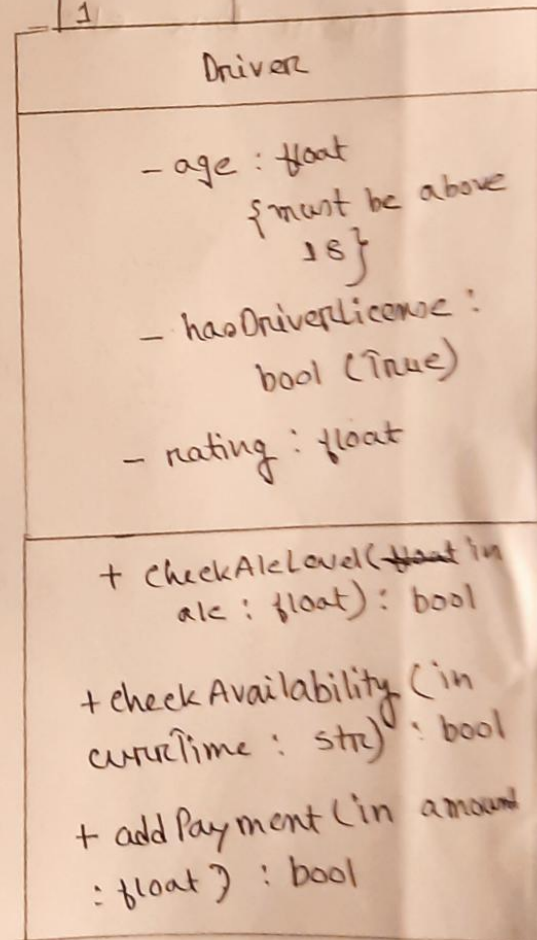 1
Driver
- age : float
{must be above
18}
- hasDriverLicense :
bool (True)
- rating : float
+ checkAlcLevel(in
alc : float) : bool
+ checkAvailability (in
currTime : str) : bool
+ addPayment (in amount
: float) : bool